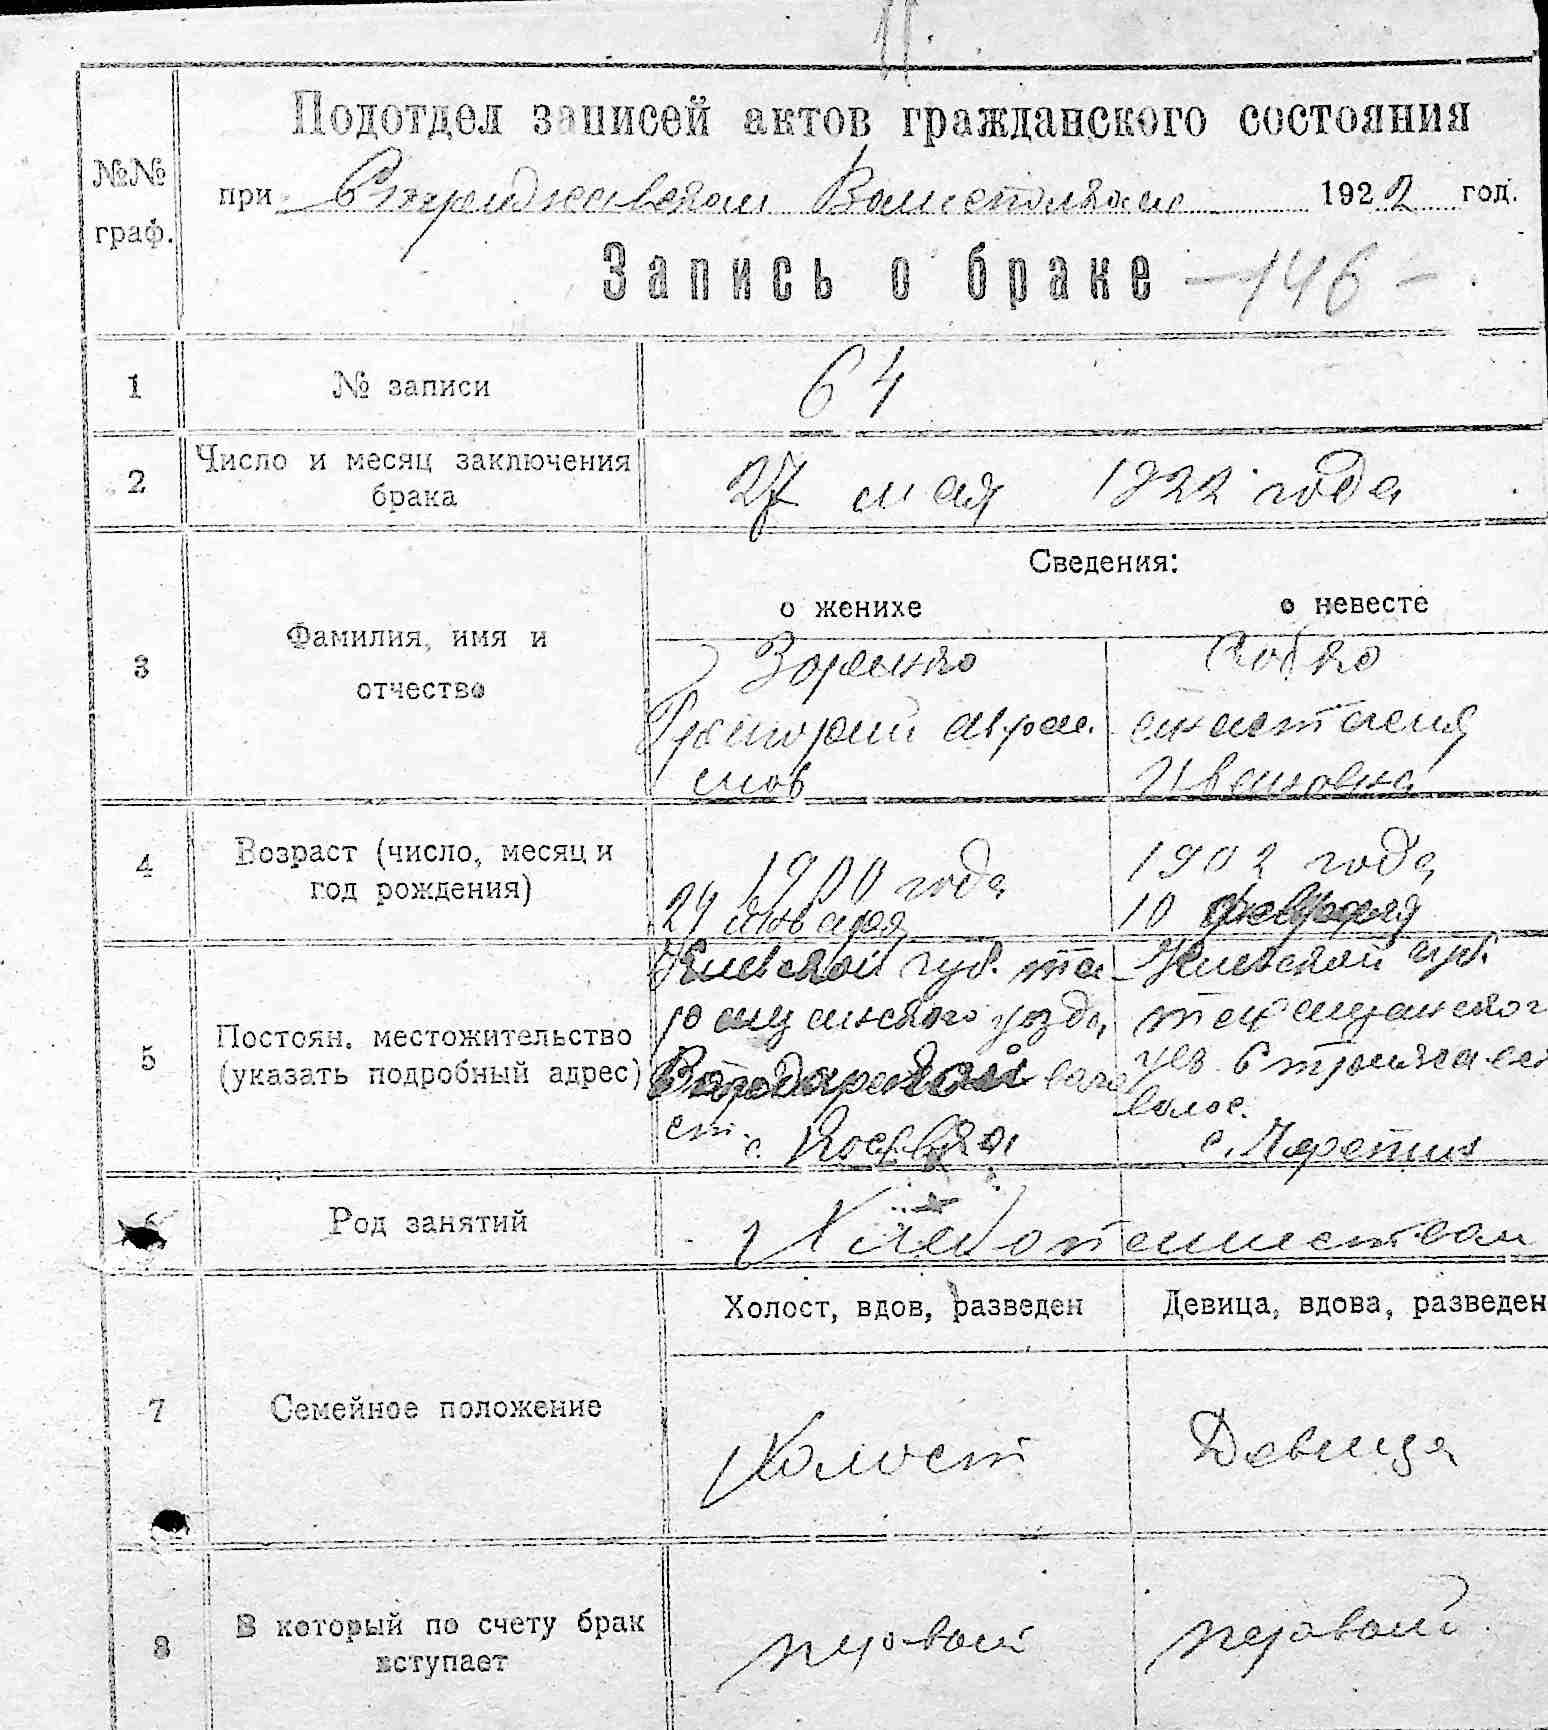 Подотдел записей актов гражданского состояния
№№ граф.
при Стрижавском Волисполкоме 1922 год.
Запись о браке -146-
1 № записи 64
2 Число и месяц заключения брака 27 мая 1922 года
Сведения:
о женихе о невесте
3 Фамилия, имя и отчество
Зоренко
Григорий Авра
мов
Бобко
анастасия
Ивановна
4 Возраст (число, месяц и год рождения)
1900 года
24 января
1902 года
10 февраля
5 Постоян. местожительство (указать подробный адрес)
Киевской губ. та
ращанского уезда
воло
ст. с.
Киевской губ.
таращанског
уез.
волос.
с.
Род занятий
Хлебопашеством
Холост, вдов, разведен Девица, вдова, разведен
7 Семейное положение Холост Девица
8 В который по счету брак вступает первый первый